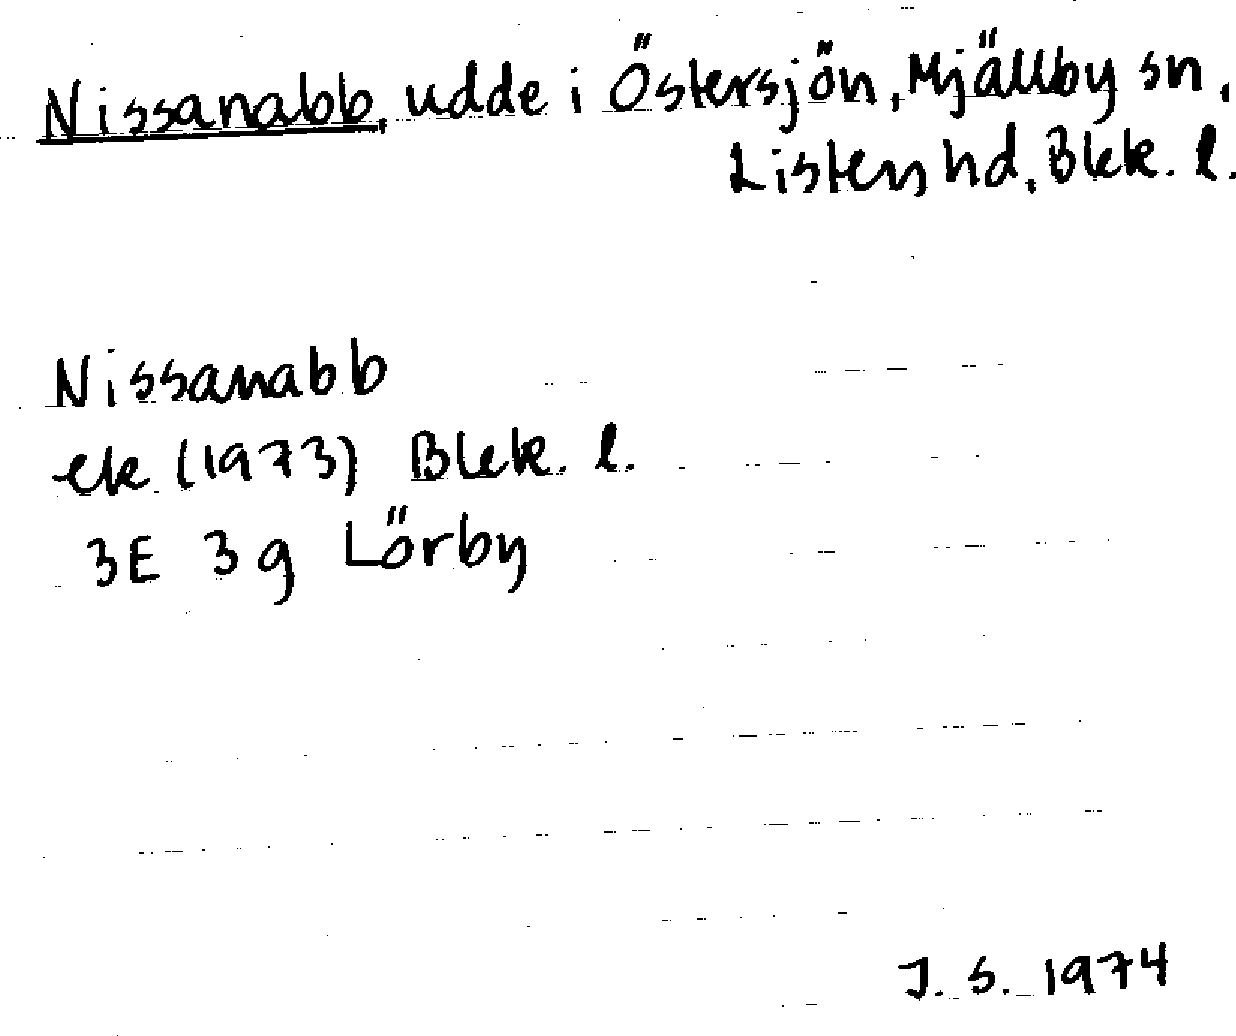 Nissanabb, udde i Östersjön, Mjällby sn,
Listers hd, Blek. l.
Nissanabb
ek (1973) Blek. l.
3E 3g Lörby
J. S. 1974